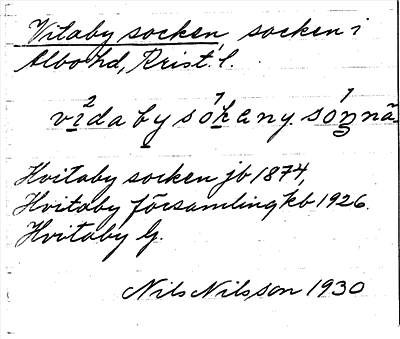 Vitaby socken, socken i
Albo hd, Krist. l.
vi²da by so¹kany. so¹nnä
Hvitaby socken jb 1874,
Hvitaby församling kb 1926.
Hvitaby G.
Nils Nilsson 1930